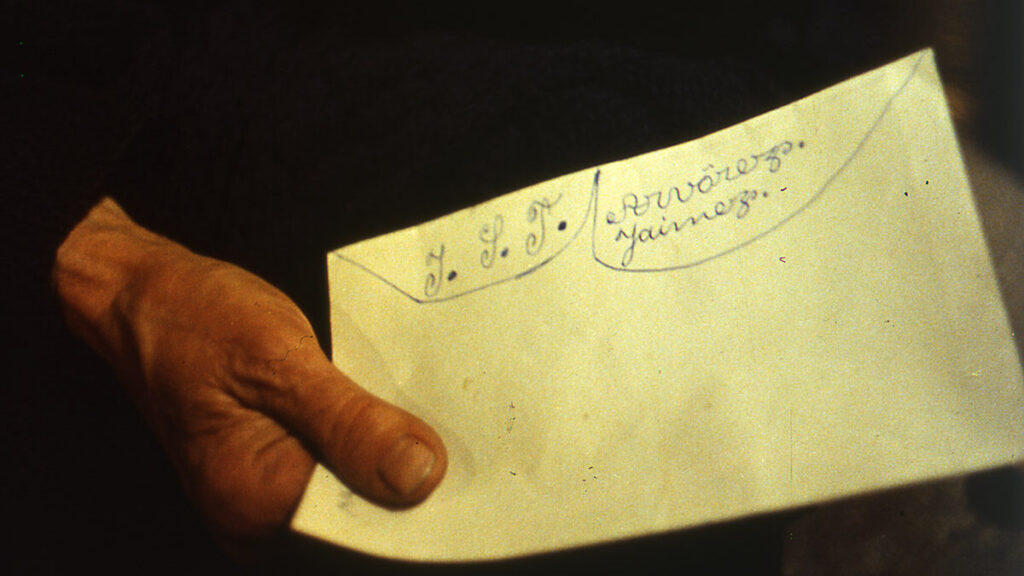 J. S. T.
Arvôrez.
Jaimez.